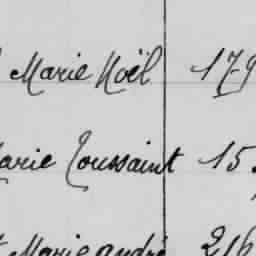 Marie Noël 179
Marie Toussaint 15
Marie andré 216